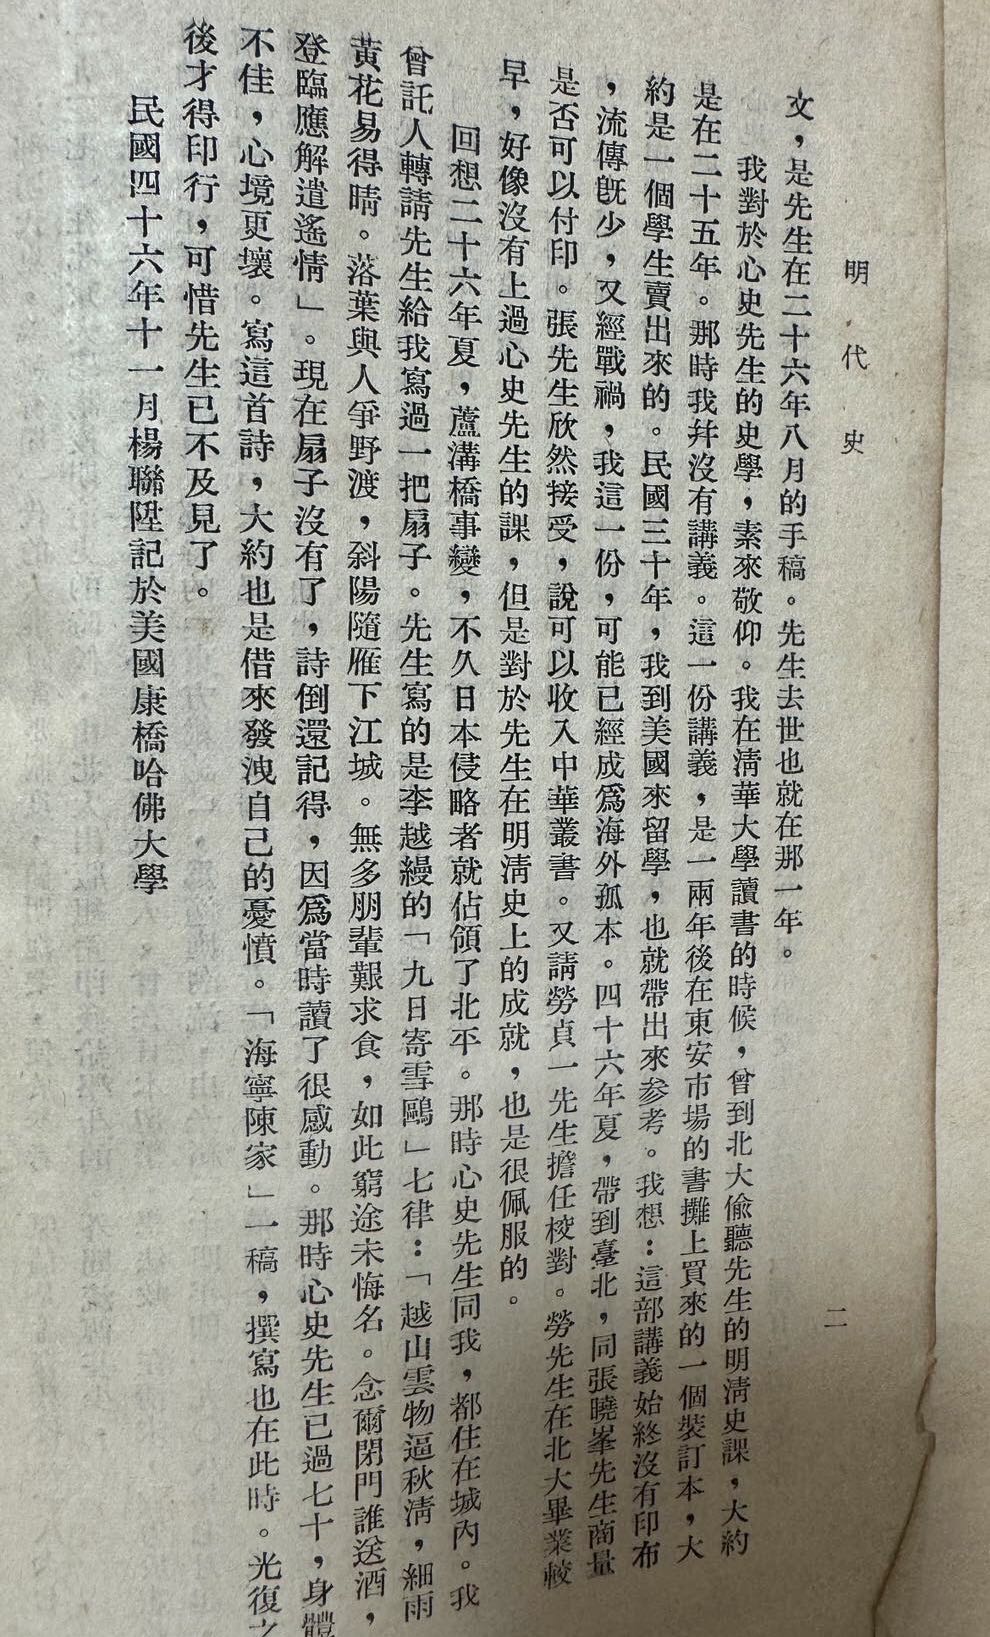 明代史
二
文，是先生在二十六年八月的手稿。先生去世也就在那一年。
我對於心史先生的史學，素來敬仰。我在淸華大學讀書的時候，曾到北大偸聽先生的明淸史課，大約
是在二十五年。那時我幷沒有講義。這一份講義，是一兩年後在東安市場的書攤上買來的一個裝訂本，大
約是一個學生賣出來的。民國三十年，我到美國來留學，也就帶出來參考。我想：這部講義始終沒有印布
，流傳旣少，又經戰禍，我這一份，可能已經成爲海外孤本。四十六年夏，帶到臺北，同張曉峯先生商量
是否可以付印。張先生欣然接受，說可以收入中華叢書。又請勞貞一先生擔任校對。勞先生在北大畢業較
早，好像沒有上過心史先生的課，但是對於先生在明淸史上的成就，也是很佩服的。
回想二十六年夏，蘆溝橋事變，不久日本侵略者就佔領了北平。那時心史先生同我，都住在城內。我
曾託人轉請先生給我寫過一把扇子。先生寫的是李越縵的「九日寄雪鷗」七律：「越山雲物逼秋淸，細雨
黃花易得晴。落葉與人爭野渡，斜陽隨雁下江城。無多朋輩艱求食，如此窮途未悔名。念爾閉門誰送酒，
登臨應解遣遙情」。現在扇子沒有了，詩倒還記得，因爲當時讀了很感動。那時心史先生已過七十，身體
不佳，心境更壞。寫這首詩，大約也是借來發洩自己的憂憤。「海寧陳家」一稿，撰寫也在此時。光復之
後才得印行，可惜先生已不及見了。
民國四十六年十一月楊聯陞記於美國康橋哈佛大學